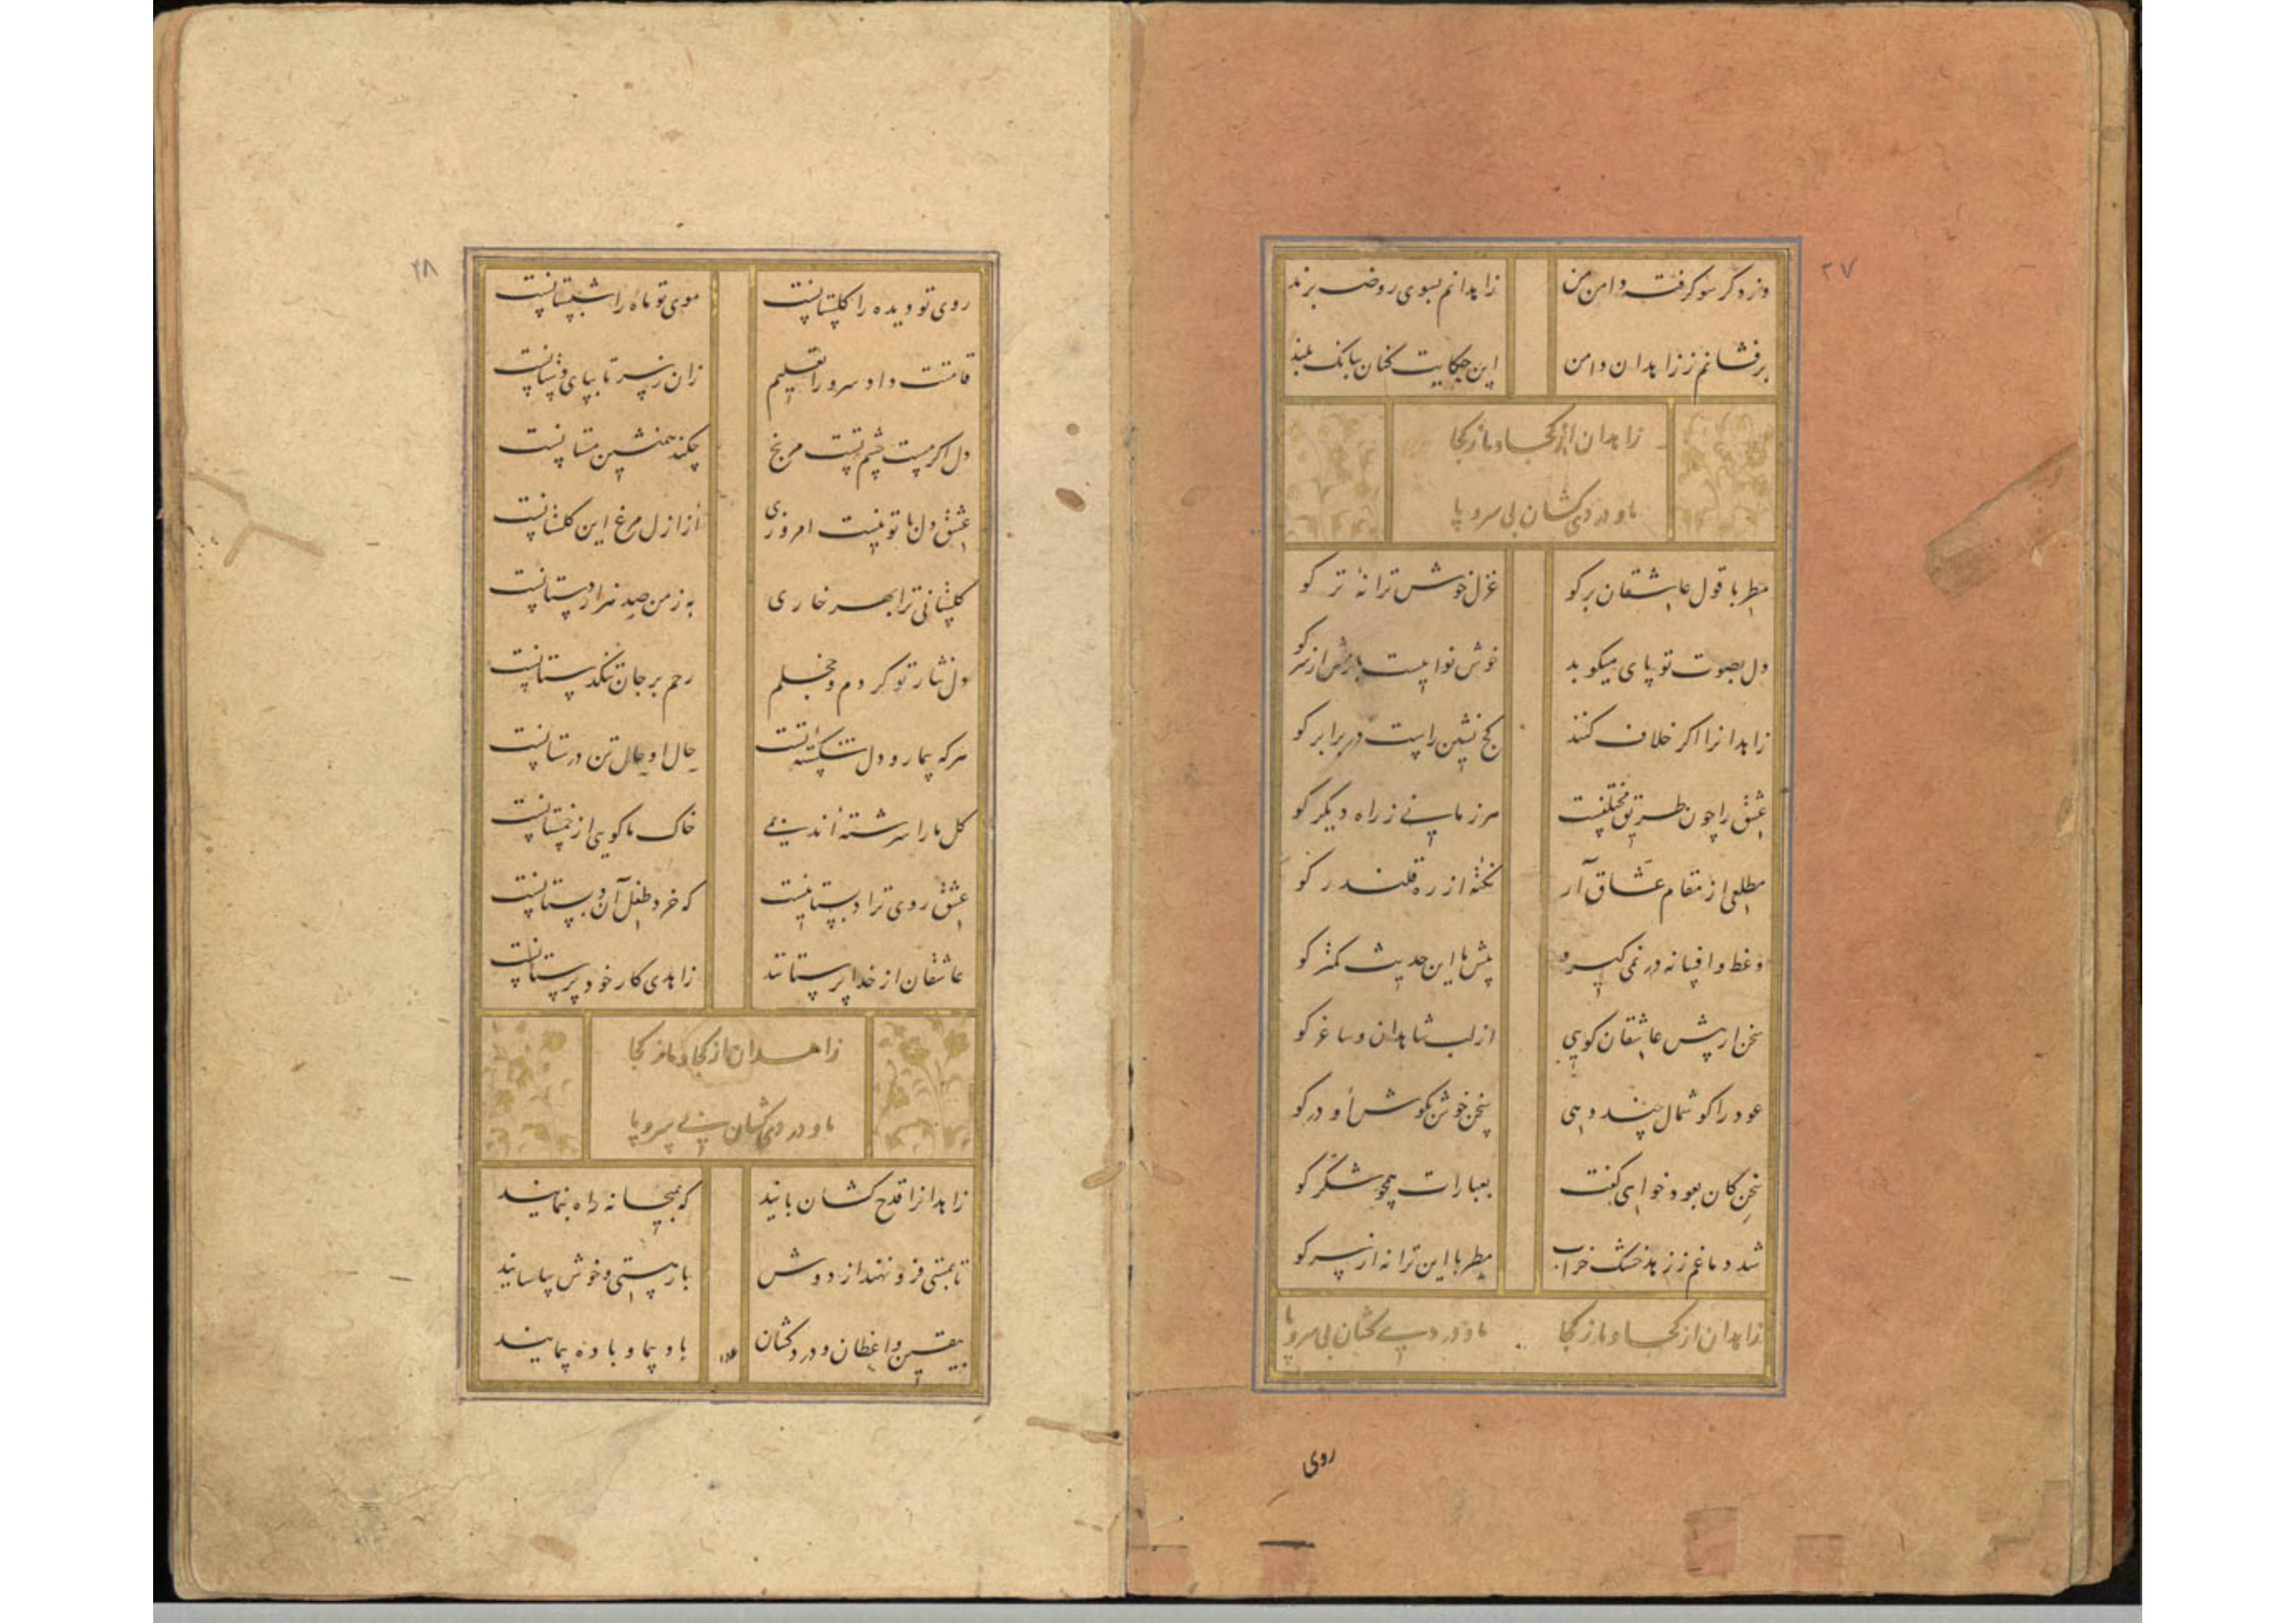 ۲۷
وز دگر سو گرفته دامن من زاهدانم بسوی روضه برند
برفشانم ز زاهدان دامن این حکایت کنان ببانک بلند
زاهدان از کجا و ما ز کجا
ما و دردی کشان بی سر و پا
مطربا قول عاشقان بر کو غزل خوش ترانهٔ تر کو
دل بصوت تو پای میکوبد خوش نواییست بازش از سر کو
زاهدانرا اکر خلاف کنند کج نشین راست در برابر کو
عشق را چون طریق مختلفست مرز مایی ز راه دیکر کو
مطلعی از مقام عشاق آر نکتهٔ از ره قلندر کو
وعظ و افسانه در نمی کیرد پیش ما این حدیث کمتر کو
سخن ار پیش عاشقان کویی از لب شاهدان و ساغر کو
عود را کوشمال چند دهی سخن خوش بکوش او در کو
سخن کان بعود خواهی کفت بعبارات همچو شکر کو
شد دماغم ز زهد خشک خراب مطربا این ترانه از سر کو
زاهدان از کجا و ما ز کجا ما و دردی کشان بی سر و پا
روی
۲۸
روی تو دیده را کلستانست موی تو ماه را شبستانست
قامتت داد سرو را تعلیم زان ز سر تا بپای
دل اکر مست چشم تست مرنج چکند همنشین مستانست
عشق دل با تو نیست امروزی از ازل مرغ این کلستانست
کلستانی ترا بهر خاری به ز من صد هزار دستانست
دل نثار تو کردم و خجلم رحم بر جان تنکدستانست
هر که بیمار و دل شکستهٔ تست حال او حال تن درستانست
کل ما را سرشته اند بمی خاک ما کویی از خمستانست
عشق روی ترا دبستانیست که خرد طفل آن دبستانست
عاشقان از خدا پرستانند زاهدی کار خود پرستانست
زاهدان از کجا و ما ز کجا
ما و دردی کشان بی سر و پا
زاهدانرا قدح کشان باید که بمیخانه راه بنمایند
تا بمستی فرو نهند از دوش بار هستی و خوش بیاسایند
بیقین واعظان و درد کشان باد پیما و باده پیمایند